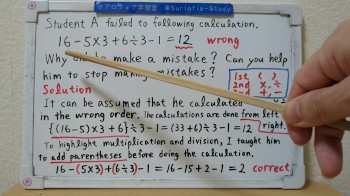 ケアロウィア学習室 @Suriatia-Study
Student A failed to following calculation.
16-5×3+6÷3-1=12 wrong
Why did he make a mistake? Can you help
him to stop making mistakes?
1st ( )
2nd ×, ÷
+, -
Solution
It can be assumed that he calculated
in the wrong order. The calculations are done from left
right.
{(16-5)×3+6}÷3-1=(33+6)÷3-1=12
To highlight multiplication and division, I taught him
to add parentheses before doing the calculation.
16-(5×3)+(6÷3)-1=16-15+2-1=2 correct